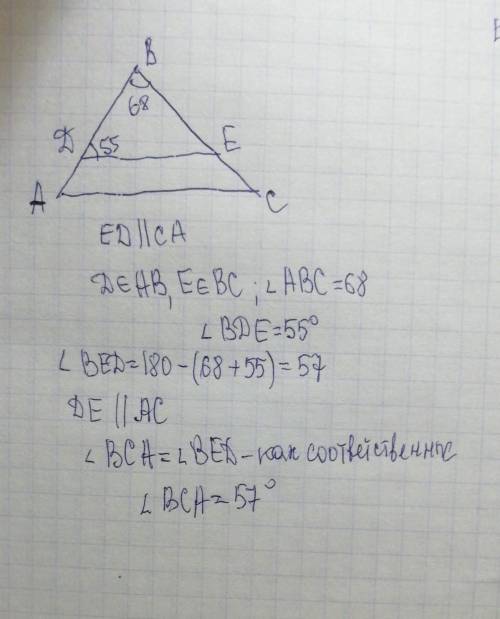 B
68
D 55 E
A C
ED||CA
D∈AB, E∈BC ; ∠ABC=68
∠BDE=55°
∠BED=180-(68+55)=57
DE || AC
∠BCA=∠BED-как соотвейственные
∠BCA=57°